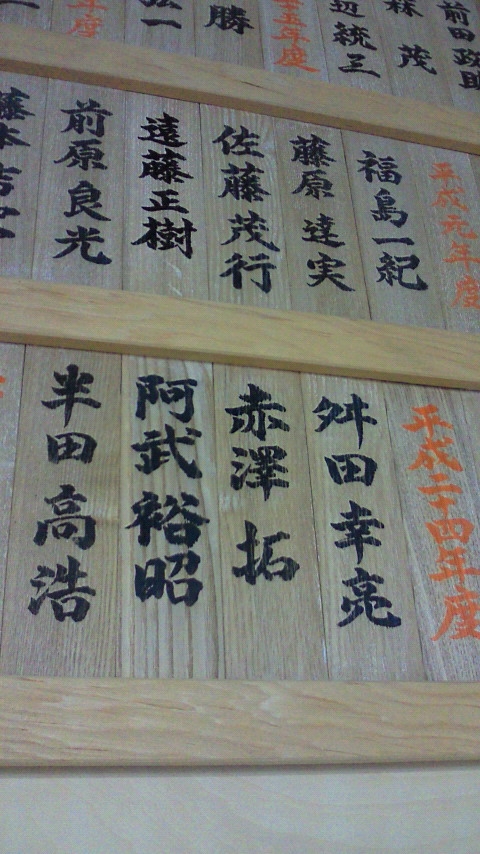 前田政
森茂
辺統三
十五年度
勝
弘一
年度
平成元年度
福島一紀
藤原達実
佐藤茂行
遠藤正樹
前原良光
藤本吉
平成二十四年度
舛田幸亮
赤澤拓
阿武裕昭
半田高浩